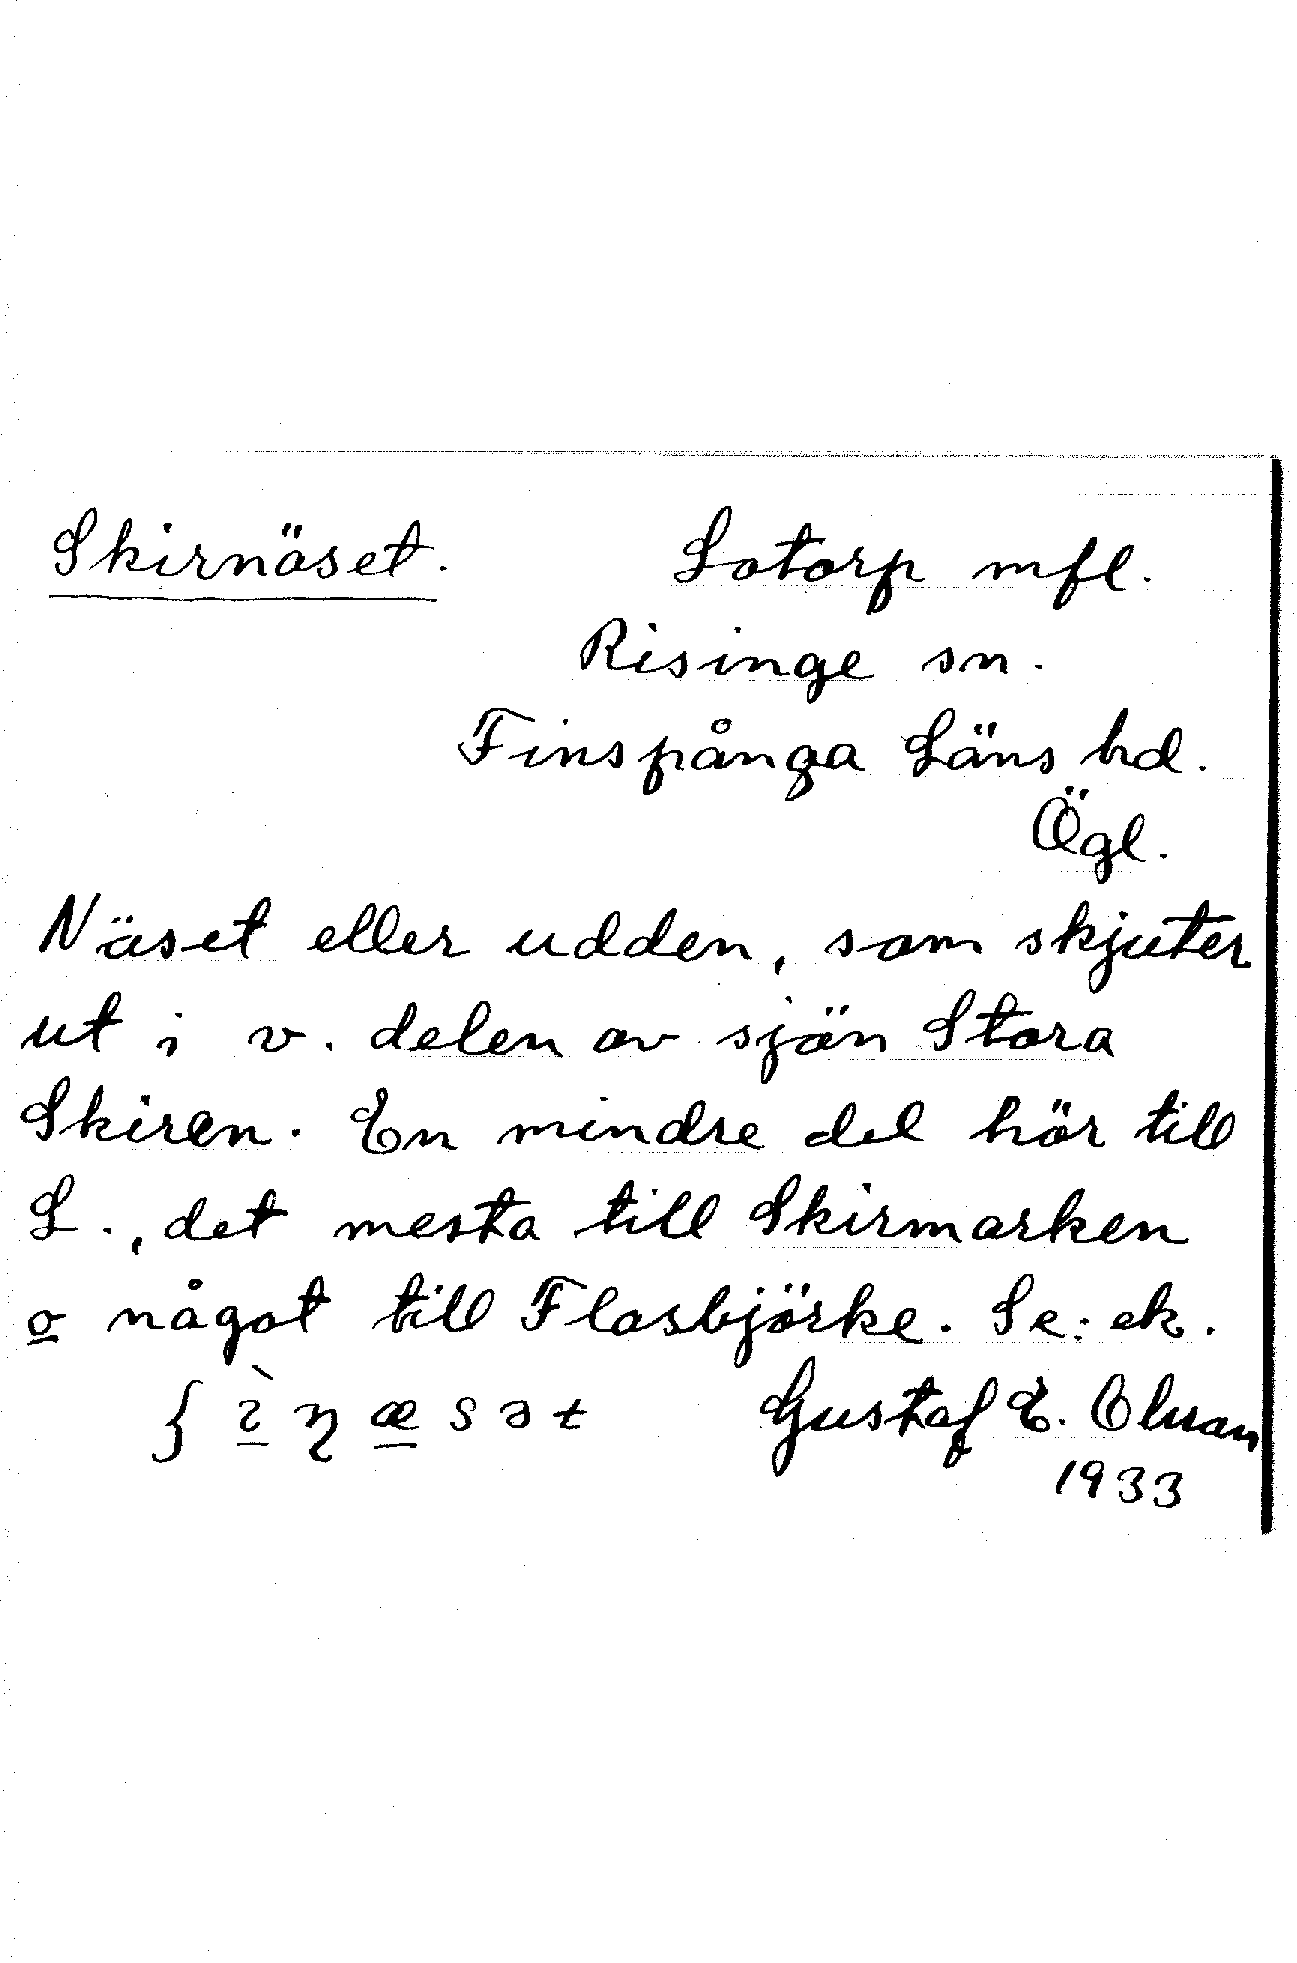 Skirnäset. Lotorp mfl.
Risinge sn.
Finspånga Läns hd.
Ögl.
Näset eller udden, som skjuter
ut i v. delen av sjön Stora
Skiren. En mindre del hör till
L., det mesta till Skirmarken
o något till Flasbjörke. Se: ek.
Gustaf E. Olsson
1933